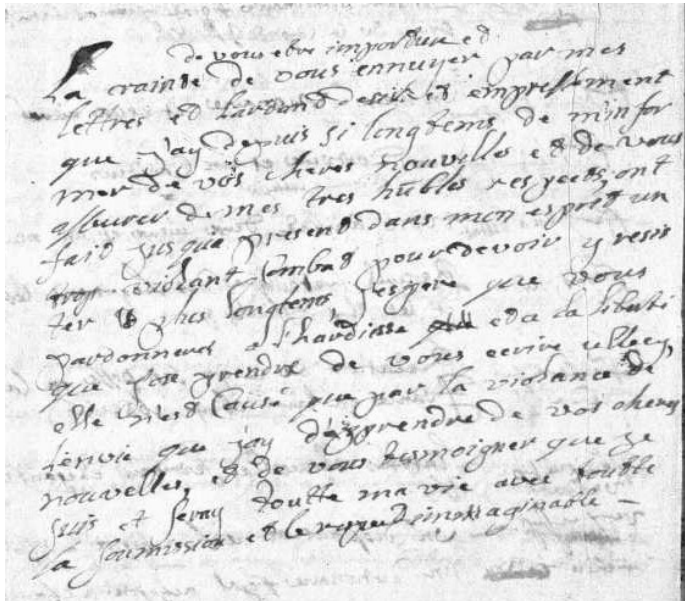 de vous estre importune et
La crainte de vous ennuyer par mes
lettres et l'ardand desir et empressement
que j'ay depuis si longtems de m'infor
mer de vos cheres nouvelles et de vous
asseurer de mes tres hũbles respects, ont
fait jusqua present dans mon esprit un
trop violant Combat pour devoir y resis
ter plus longtems, J'espere que vous
pardonneres a l'hardiesse et a la liberté
que j'ose prendre de vous ecrire cellecy,
elle n'est Causé que par la violance de
l'envie que j'ay d'apprendre de vos cheres
nouvelles, et de vous tesmoigner que je
suis et seray toutte ma vie avec toutte
la soumission et le respect inimaginable –